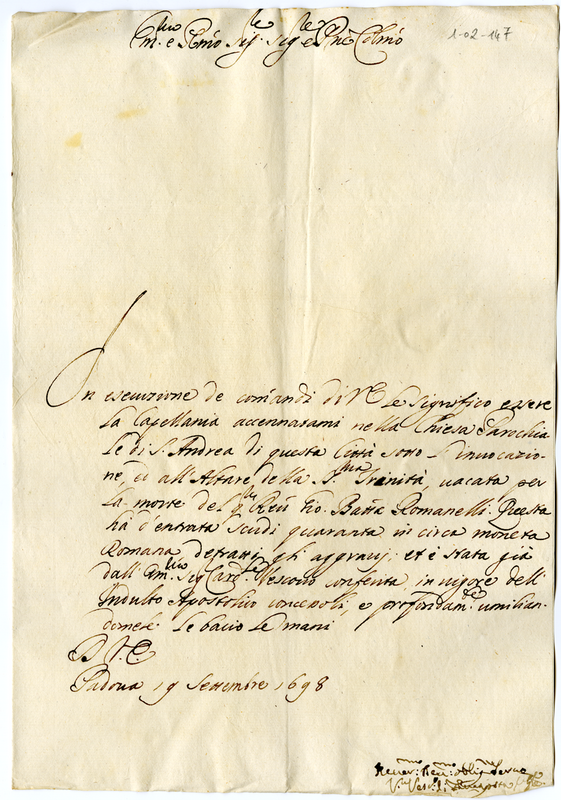 Em.mo e R.mo Sig.r Sig.re e P.ne Colmo
1-02-147
In esecuzione de comandi di V.E. le significo essere
la Capellania accennatami nella Chiesa Parochia
le di S. Andrea di questa Città sotto l'invocazio-
ne, et all'Altare della S.ma Trinità, vacata per
la morte del q. Reu Gio. Batta Romanelli. Questa
hà d'entrata scudi quaranta in circa moneta
Romana, detratti gli aggravj; et è stata già
dall'Em.mo Sig. Card.le Vescovo conferita, in vigore dell'
Indulto Apostolico concessoli, e profondam.te umilian-
domele le bacio le mani
D. V. E.
Padova 19 Settembre 1698